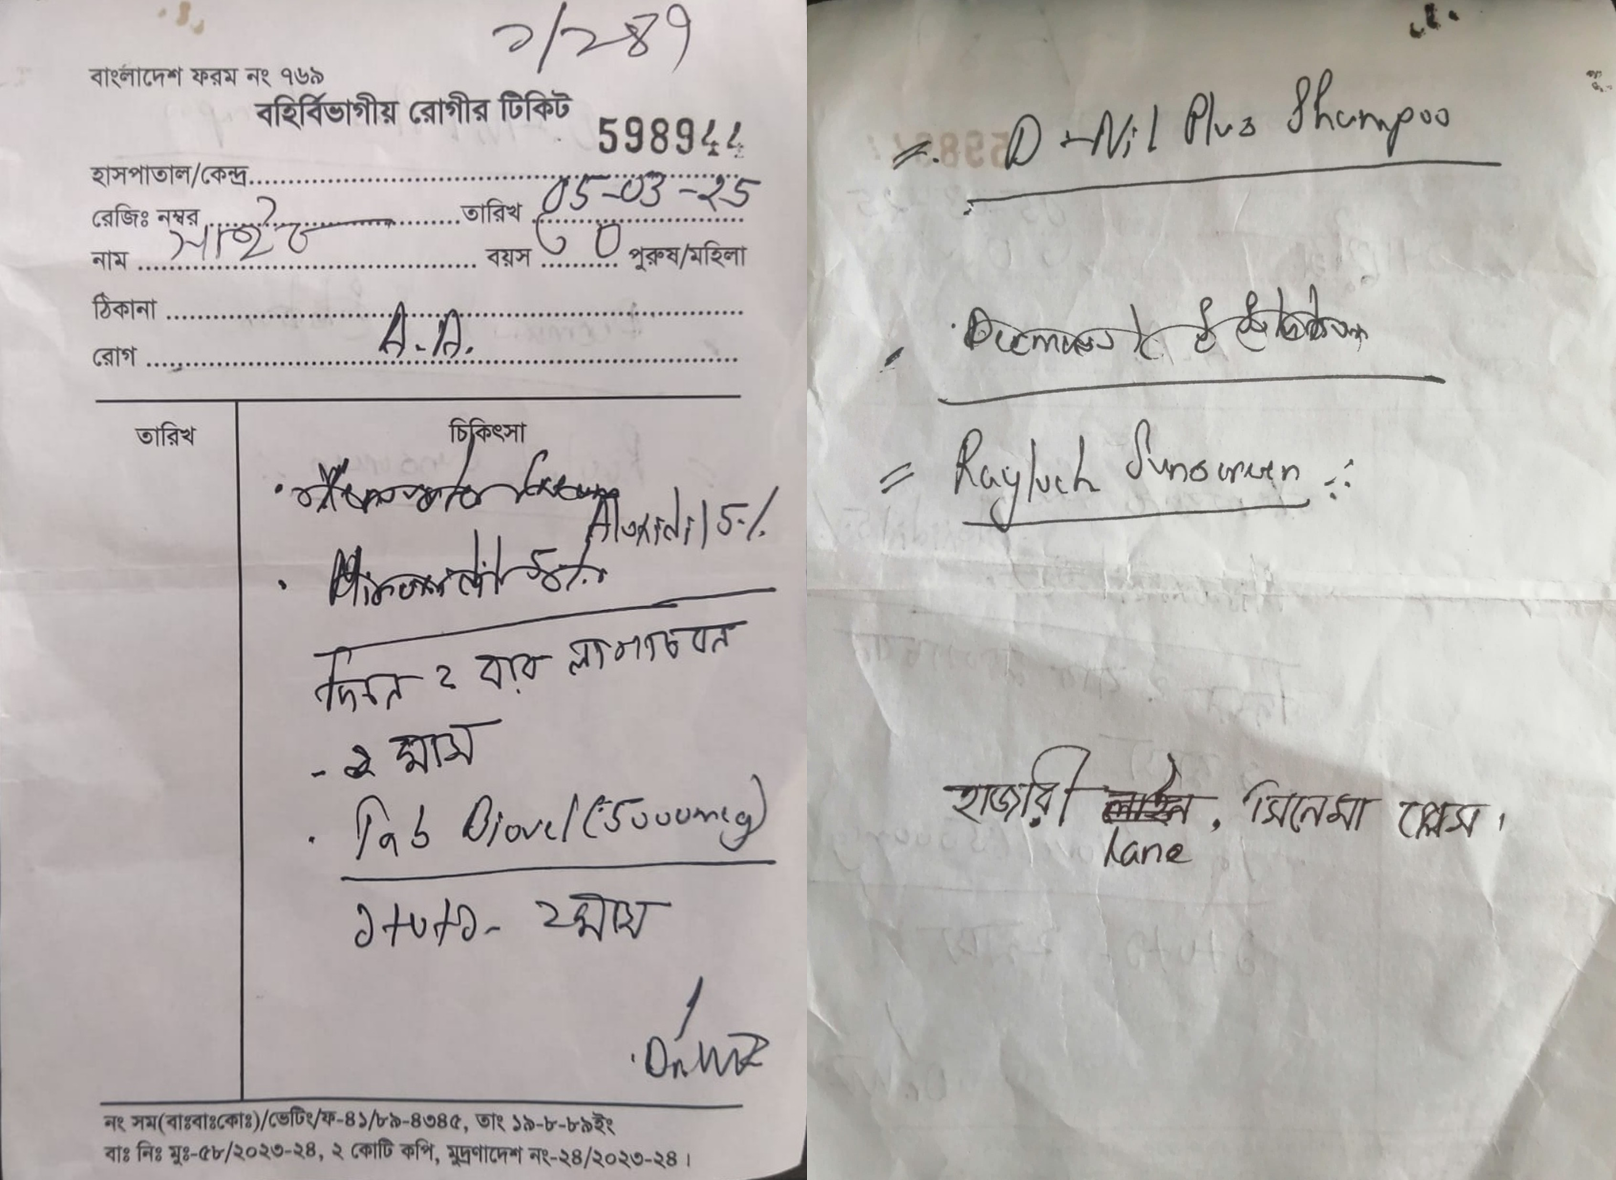 ২/২৪৭
বাংলাদেশ ফরম নং ৭৬৯
বহির্বিভাগীয় রোগীর টিকিট
598944
হাসপাতাল/কেন্দ্র
রেজিঃ নম্বর তারিখ 05-03-25
নাম বয়স ৩০ পুরুষ/মহিলা
ঠিকানা
রোগ A.A.
তারিখ চিকিৎসা
Aloxidil 5%
দিনে ২ বার লাগাবেন
- ২ মাস
Tab (5000mcg)
১+০+১- ২মাস
নং সম(বাঃবাঃকোঃ)/ভেটিং/ফ-৪১/৮৯-৪৩৪৫, তাং ১৯-৮-৮৯ইং
বাঃ নিঃ মুঃ-৫৮/২০২৩-২৪, ২ কোটি কপি, মুদ্রণাদেশ নং-২৪/২০২৩-২৪।
= D-Nil Plus Shampoo
= Sunscreen
হাজারী লাইন, সিনেমা প্লেস।
Lane